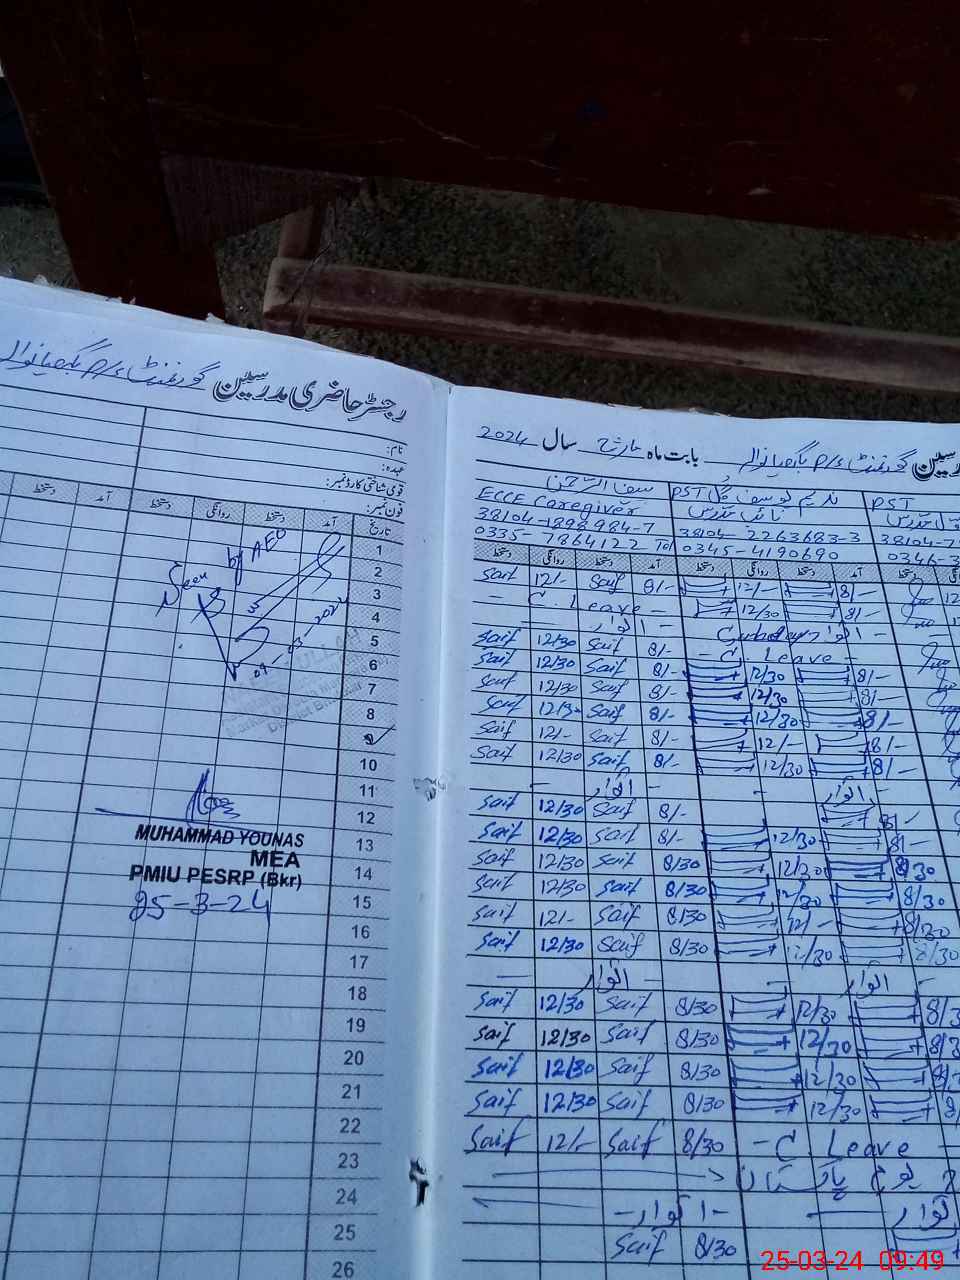 رجسٹر حاضری مدرسین گورنمنٹ P/S
نام:
عہدہ:
قومی شناختی کارڈ نمبر:
فون نمبر:
تاریخ آمد دستخط روانگی دستخط آمد دستخط
1
2
3
4
5
6
7
8
9
10
11
12
13
14
15
16
17
18
19
20
21
22
23
24
25
26
Seen by AEO
09-03-2024
MUHAMMAD YOUNAS
MEA
PMIU PESRP (Bkr)
25-3-24
گورنمنٹ P/S بابت ماہ مارچ سال 2024
سیف الرحمن
ECCE Caregiver
38104-1898984-7
0335-7864122
PST
38104-2263683-3
0345-4190690
PST
38104-7
0346-3
آمد دستخط روانگی دستخط آمد دستخط روانگی دستخط
Saif 12/- Saif 8/- 12/- 8/-
- C. Leave - 12/30 8/-
اتوار Sunday اتوار
Saif 12/30 Saif 8/- - C Leave -
Saif 12/30 Saif 8/- 12/30 8/-
Saif 12/30 Saif 8/- 12/30 8/-
Saif 12/30 Saif 8/- 12/30 8/-
Saif 12/- Saif 8/- 12/- 8/-
Saif 12/30 Saif 8/- 12/30 8/-
- اتوار - - اتوار -
Saif 12/30 Saif 8/- 8/-
Saif 12/30 Saif 8/- 12/30 8/-
Saif 12/30 Saif 8/30 12/30 8/30
Saif 12/30 Saif 8/30 12/30 8/30
Saif 12/- Saif 8/30 12/- 8/30
Saif 12/30 Saif 8/30 12/30
- اتوار - - اتوار -
Saif 12/30 Saif 8/30 12/30 8/3
Saif 12/30 Saif 8/30 12/30 8/3
Saif 12/30 Saif 8/30 12/30 8/
Saif 12/30 Saif 8/30 12/30
Saif 12/- Saif 8/30 - C. Leave -
یوم پاکستان
- اتوار - اتوار
Saif 8/30
25-03-24 09:49